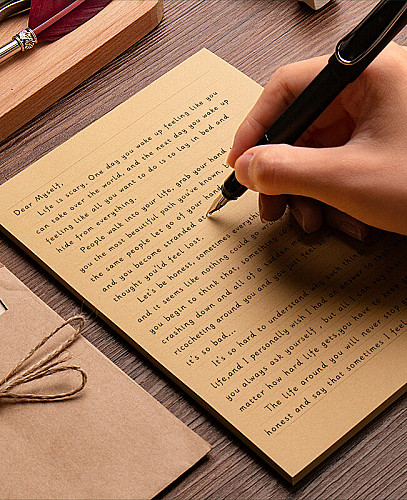 Dear Myself,
Life is scary, One day you wake up feeling like you
can take over the world, and the next day you wake up
feeling like all you want to do is to lay in bed and
hide from everything.
People walk into your life, grab your hand
you the most beautiful path you've known,
the same people let go of your hand
and you become stranded
thought you'd feel lost.
Let's be honest, sometimes
and it seems like nothing could go
you begin to think that something
crashing down and all of a sudden
ricocheting around you and you
it's so bad...
It's so hard to understand why such thing
life, and I personally wish I had another
you always ask yourself, but all I
matter how hard life gets you have to
The life around you will never stop
honest and say that sometimes I feel